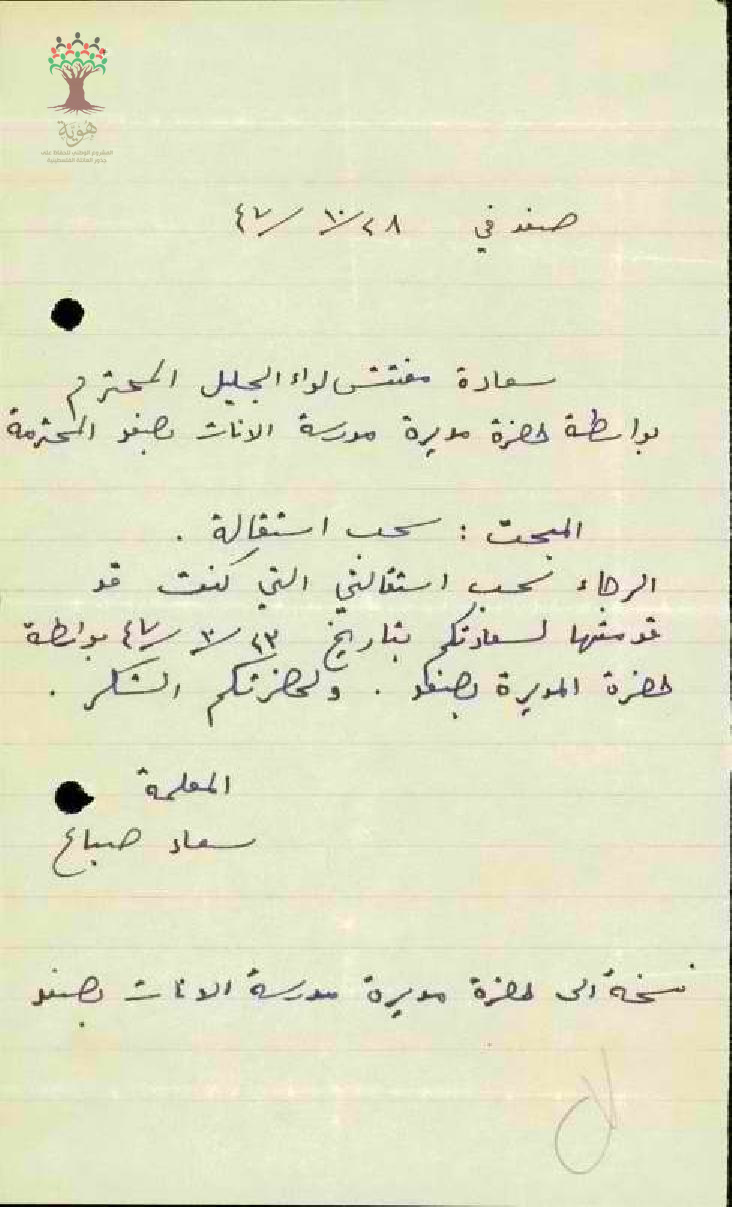 هُويّة
المشروع الوطني للحفاظ على
جذور العائلة الفلسطينية
صفد في ٢٨/١٠/٤٧
سعادة مفتش لواء الجليل المحترم
بواسطة حضرة مديرة مدرسة الاناث بصفد المحترمة
المبحث : سحب استقالة .
الرجاء سحب استقالتي التي كنت قد
قدمتها لسعادتكم بتاريخ ٤٧/ بواسطة
حضرة المديرة بصفد . ولحضرتكم الشكر .
المعلمة
سعاد صباغ
نسخة الى حضرة مديرة مدرسة الاناث بصفد